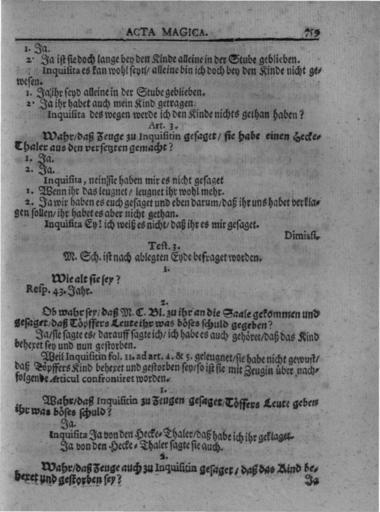 ACTA MAGICA. 759
1. Ja.
2. Ja ist sie doch lange bey den Kinde alleine in der Stube geblieben.
Inquisita es kan wohl seyn/ alleine bin ich doch bey den Kinde nicht ge-
wesen.
1. Ja/ihr seyd alleine in der Stube geblieben.
2. Ja ihr habet auch mein Kind getragen.
Inquisita des wegen werde ich den Kinde nichts gethan haben?
Art. 3.
Wahr/daß Zeuge zu Inquisitin gesaget/ sie habe einen Hecke-
Thaler aus den versetzten gemacht?
1. Ja.
2. Ja.
Inquisita, nein/sie haben mir es nicht gesaget
1. Wenn ihr das leugnet/ leugnet ihr wohl mehr.
2. Ja wir haben es euch gesaget und eben darum/daß ihr uns habet verkla-
gen sollen/ihr habet es aber nicht gethan.
Inquisita Ey! ich weiß es nicht/daß ihr es mir gesaget.
Dimissi.
Test. 3.
M. Sch. ist nach ablegten Eyde befraget worden.
1.
Wie alt sie sey?
Resp. 43. Jahr.
2.
Ob wahr sey/daß M. C. Bl. zu ihr an die Saale gekommen und
gesaget/daß Töpffers Leute ihr was böses schuld gegeben?
Ja/sie sagte es/ darauff sagte ich/ ich habe es auch gehöret/daß das Kind
behexet sey und nun gestorben.
Weil Inquisitin fol. 11. ad art. 4. & 5. geleugnet/sie habe nicht gewust/
daß Töpffers Kind behexet und gestorben sey/so ist sie mit Zeugin über nach-
folgende Articul confrontiret worden.
1.
Wahr/daß Inquisitin zu Zeugen gesaget/Töffers Leute geben
ihr was böses schuld?
Ja.
Inquisita Ja von den Hecke-Thaler/daß habe ich ihr geklaget.
Ja von den Hecke-Thaler sagte sie auch.
2.
Wahr/daß Zeuge auch zu Inquisitin gesaget/ daß das Kind be-
hexet und gestorben sey?
Ja